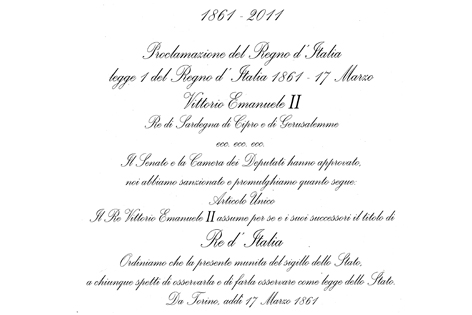 1861 - 2011
Proclamazione del Regno d'Italia
legge 1 del Regno d'Italia 1861 - 17 Marzo
Vittorio Emanuele II
Re di Sardegna di Cipro e di Gerusalemme
ecc. ecc. ecc.
Il Senato e la Camera dei Deputati hanno approvato,
noi abbiamo sanzionato e promulghiamo quanto segue:
Articolo Unico
Il Re Vittorio Emanuele II assume per se e i suoi successori il titolo di
Re d' Italia
Ordiniamo che la presente munita del sigillo dello Stato,
a chiunque spetti di osservarla e di farla osservare come legge dello Stato.
Da Torino, addì 17 Marzo 1861